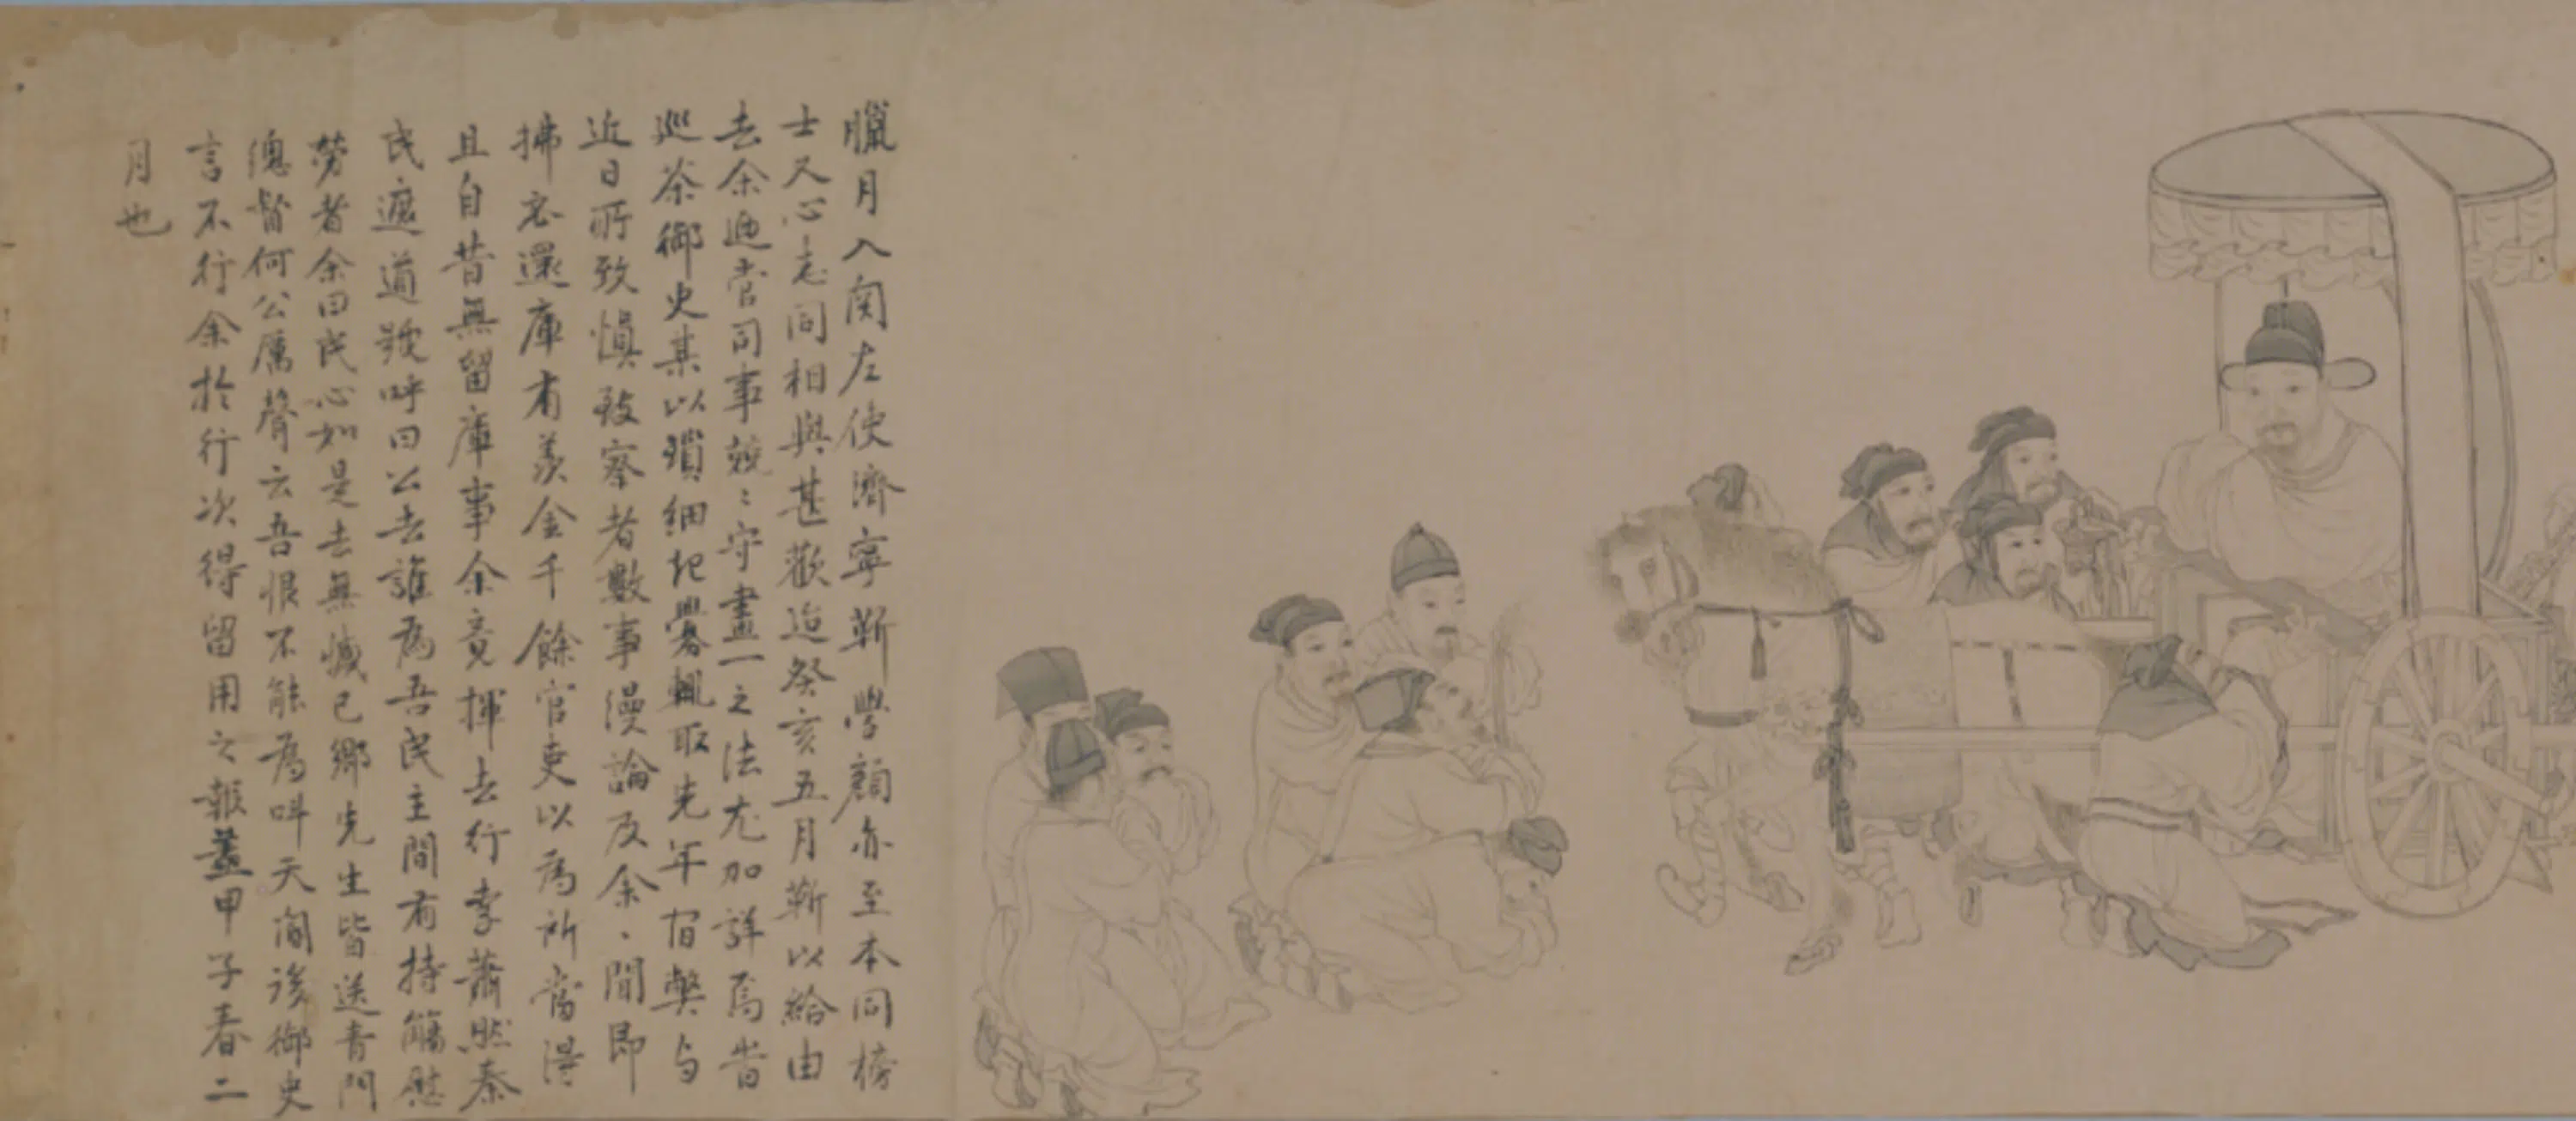 臘月入関左使濟寧靳學顏亦至本同榜
士又心志同相與甚歡迨癸亥五月靳以給由
去余迺壹司事兢〻守畫一之法尤加詳焉昔
巡茶御史某以瑣細祀釁輒取先年宿弊与
近日所致慎致察者數事漫論及余、聞即
拂衣還庫有羨金千餘官吏以為所當得
且自昔無留庫事余竟揮去行李蕭然秦
民遮道號呼曰公去誰為吾民主間有持觴慰
勞者余曰民心如是去無憾已鄉先生皆送青門
總督何公厲聲云吾恨不能為叫天閽後御史
言不行余於行次得留用之報蓋甲子春二
月也